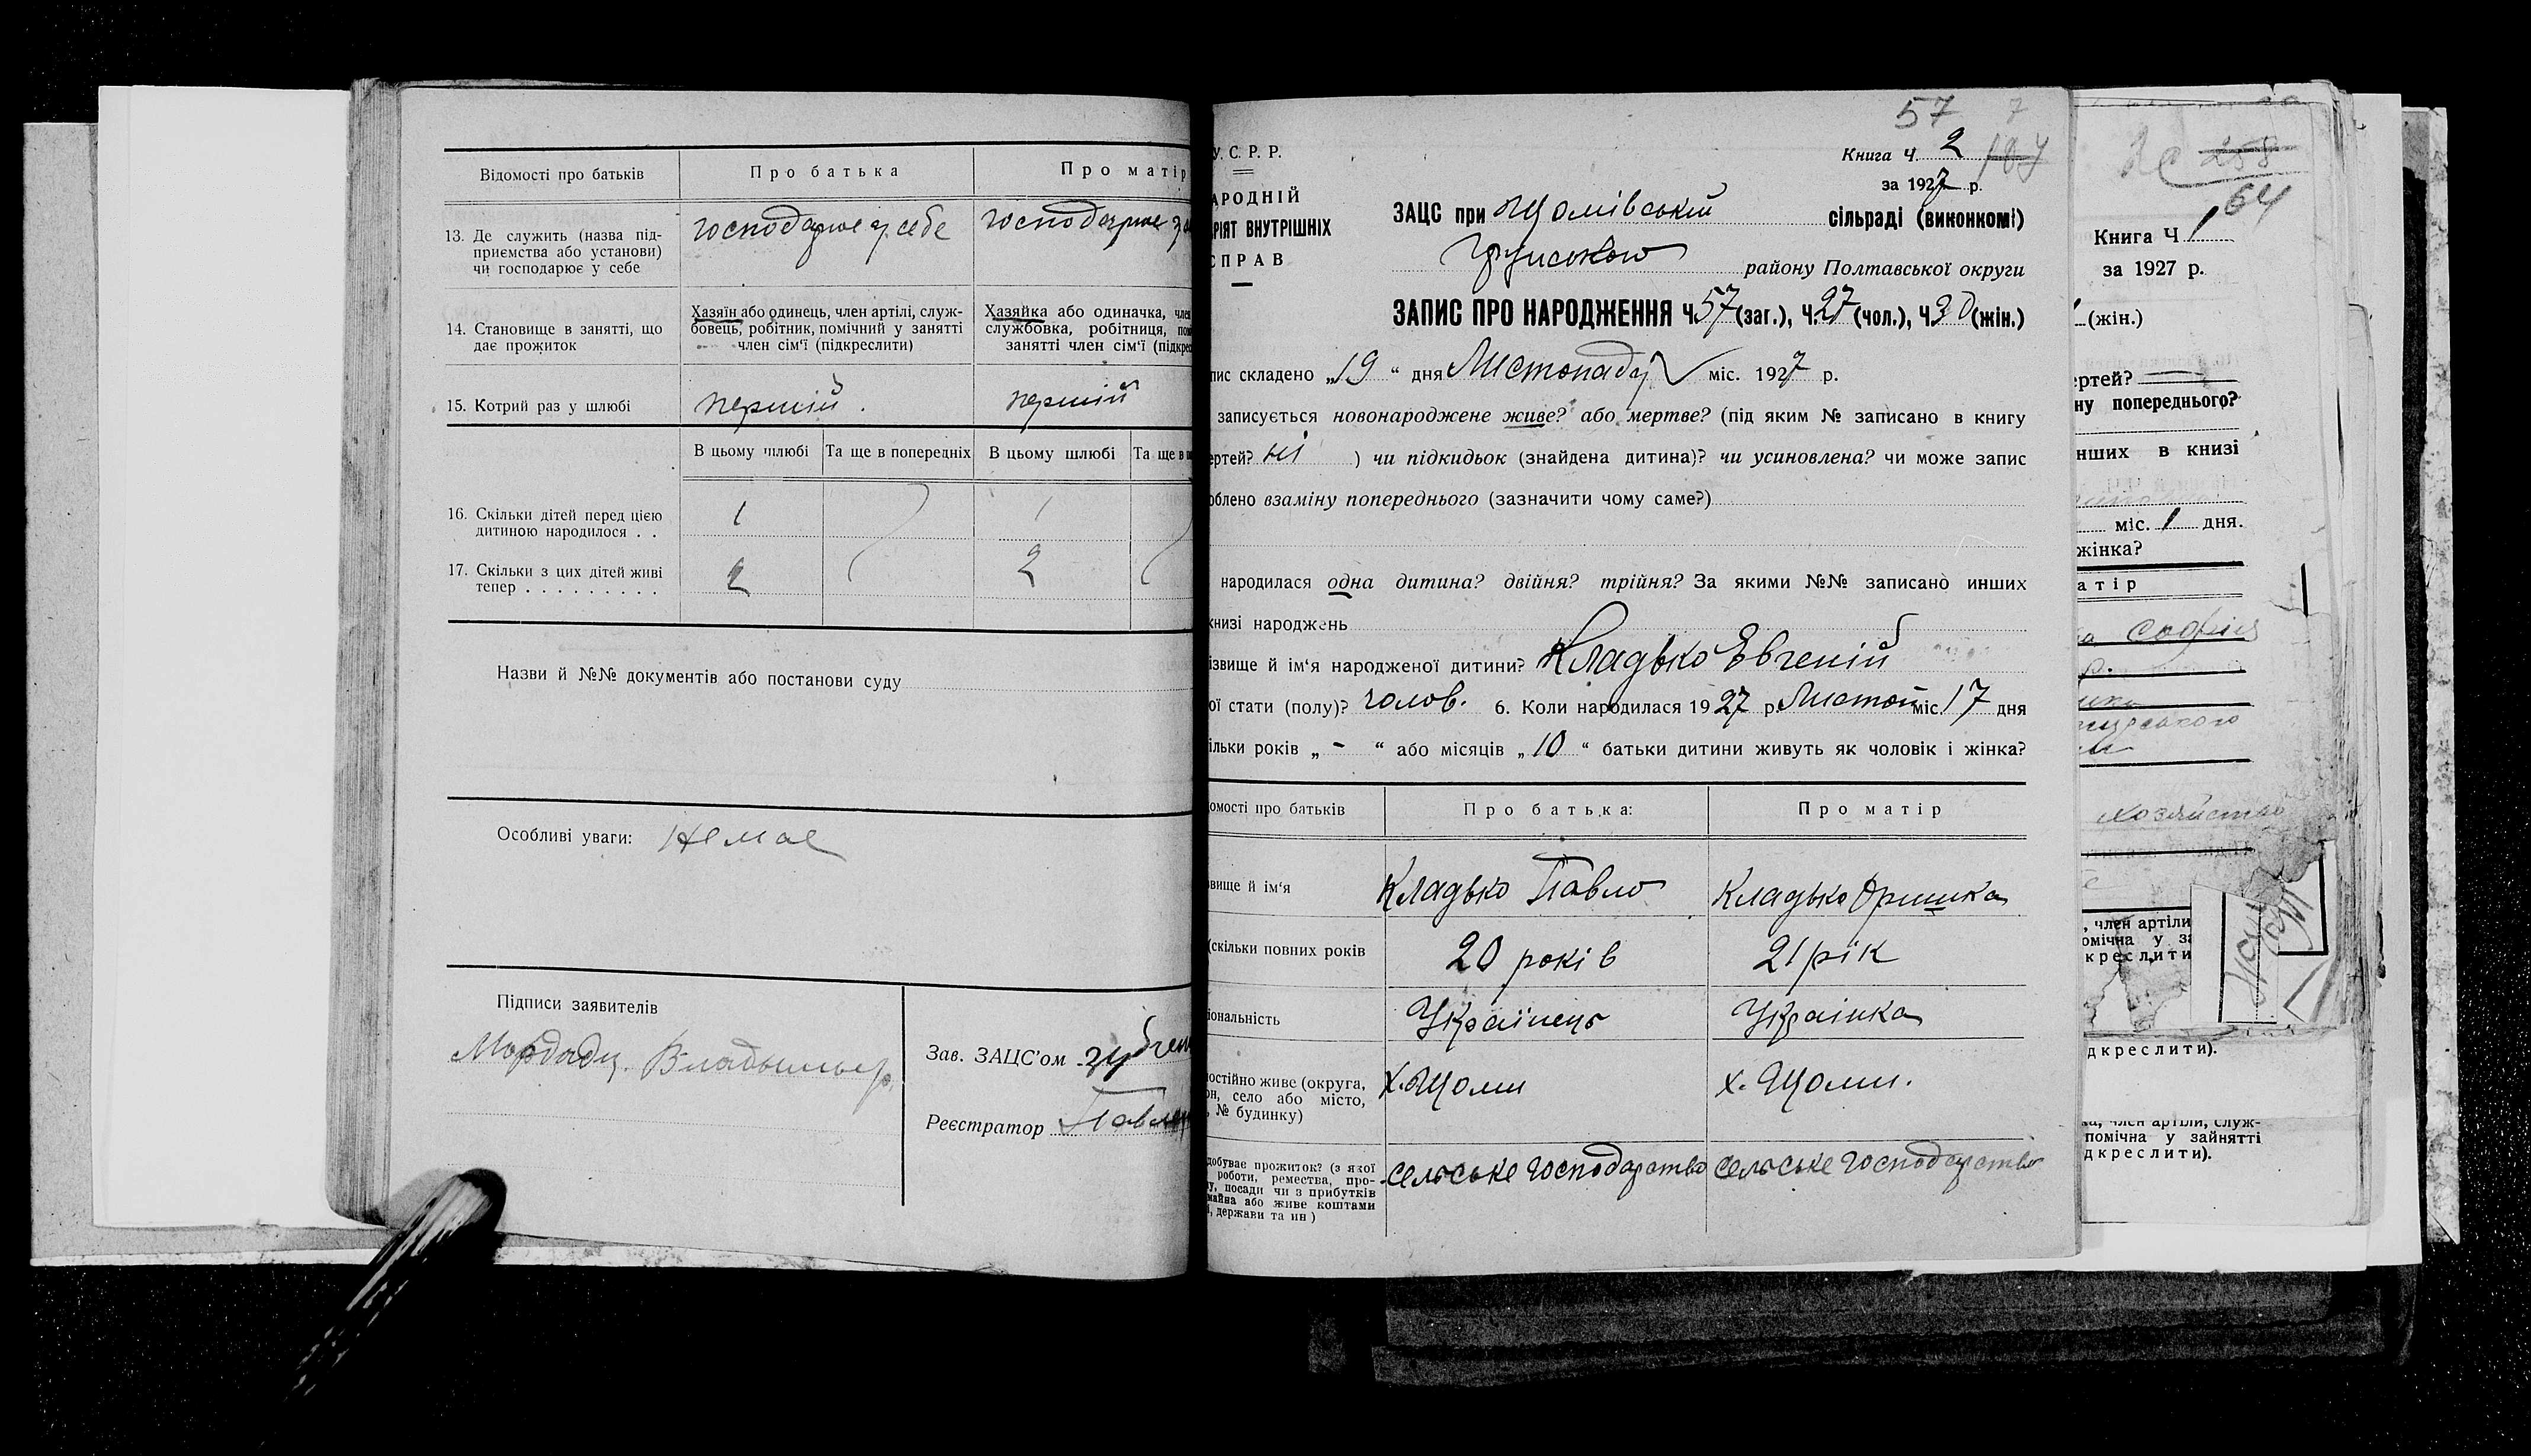 Відомості про батьків
Про батька
Про матір
13. Де служить (назва під-
приємства або установи)
чи господарює у себе
господарює у себе
господарює
14. Становище в занятті, що
дає прожиток
Хазяїн або одинець, член артілі, служ-
бовець, робітник, помічний у занятті
член сім'ї (підкреслити)
Хазяйка або одиначка, член
службовка, робітниця,
занятті член сім'ї
15. Котрий раз у шлюбі
перший
перший
В цьому шлюбі
Та ще в попередніх
В цьому шлюбі
Та ще в
16. Скільки дітей перед цією
дитиною народилося . .
1
1
17. Скільки з цих дітей живі
тепер . . . . . . . . .
2
2
Назви й №№ документів або постанови суду
Особливі уваги: Немає
Підписи заявителів
Зав. ЗАЦС'ом
Реєстратор
57
7
У. С. Р. Р.
Книга Ч. 2
за 1927 р.
АРОДНІЙ
РІЯТ ВНУТРІШНІХ
СПРАВ
ЗАЦС при Щомівській сільраді (виконкомі)
району Полтавської округи
ЗАПИС ПРО НАРОДЖЕННЯ Ч. 57 (заг.), Ч. 27 (чол.), Ч. 30 (жін.)
пис складено „19“ дня Листопаду міс. 1927 р.
записується новонароджене живе? або мертве? (під яким № записано в книгу
ертей? ні ) чи підкидьок (знайдена дитина)? чи усиновлена? чи може запис
облено взаміну попереднього (зазначити чому саме?)
народилася одна дитина? двійня? трійня? За якими №№ записано инших
книзі народжень
ізвище й ім'я народженої дитини? Кладько Евгеній
ої стати (полу)? чолов. 6. Коли народилася 1927 р. Листоп міс. 17 дня
ільки років „ - “ або місяців „10“ батьки дитини живуть як чоловік і жінка?
домості про батьків
Про батька:
Про матір
звище й ім'я
Кладько Павло
Кладько Оришка
(скільки повних років
20 років
21 рік
іональність
Українець
Українка
постійно живе (округа,
он, село або місто,
, № будинку)
х. Щоми
х. Щоми.
добуває прожиток? (з якої
роботи, ремества, про-
у, посади чи з прибутків
майна або живе коштами
і, держави та ин)
Сельське господарство
Сельське господарство
258
64
Книга Ч 1
за 1927 р.
(жін.)
ертей?
ну попереднього?
нших в книзі
міс. 1 дня.
жінка?
атір
София
хозяйство
, член артіли
омічна у за
креслити
дкреслити).
ка, член артіли, служ-
помічна у зайнятті
дкреслити).